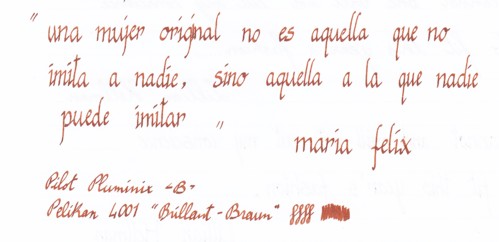 "una mujer original no es aquella que no
imita a nadie, sino aquella a la que nadie
puede imitar "
maria felix
Pilot Pluminix -B-
Pelikan 4001 "Brillant-Braun" ffff